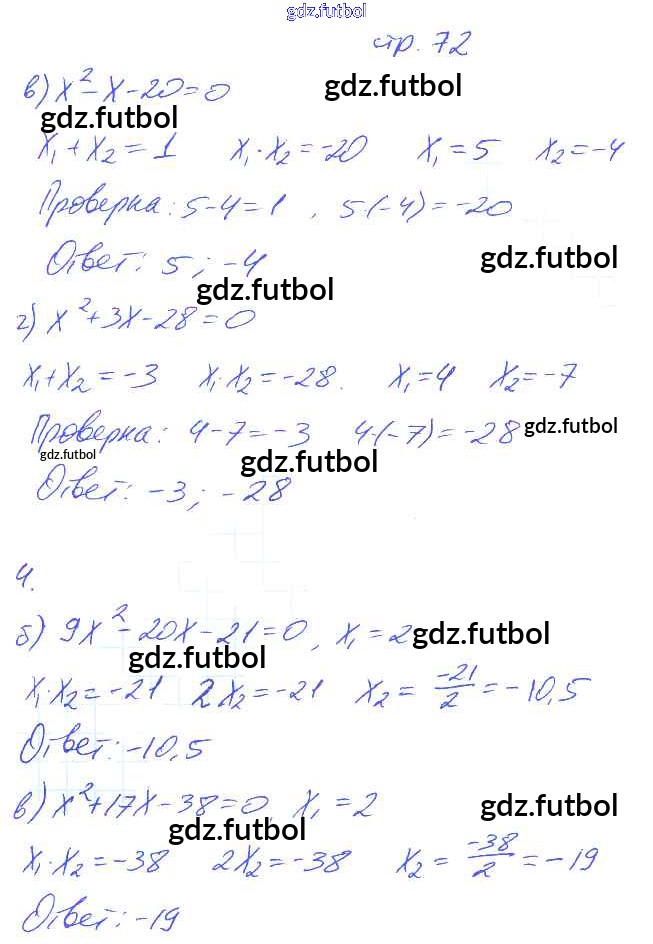 gdz.futbol
стр. 72
в) x² - x - 20 = 0 gdz.futbol
gdz.futbol
x₁ + x₂ = 1 x₁ · x₂ = -20 x₁ = 5 x₂ = -4
Проверка: 5 - 4 = 1 , 5·(-4) = -20
Ответ: 5 ; -4 gdz.futbol
gdz.futbol
г) x² + 3x - 28 = 0
x₁ + x₂ = -3 x₁ · x₂ = -28. x₁ = 4 x₂ = -7
Проверка: 4 - 7 = -3 4·(-7) = -28 gdz.futbol
gdz.futbol gdz.futbol
Ответ: -3 ; -28
4.
б) 9x² - 20x - 21 = 0 , x₁ = 2 gdz.futbol
gdz.futbol
x₁ · x₂ = -21 2x₂ = -21 x₂ = -21/2 = -10,5
Ответ: -10,5
в) x² + 17x - 38 = 0, x₁ = 2 gdz.futbol
gdz.futbol
x₁ · x₂ = -38 2x₂ = -38 x₂ = -38/2 = -19
Ответ: -19